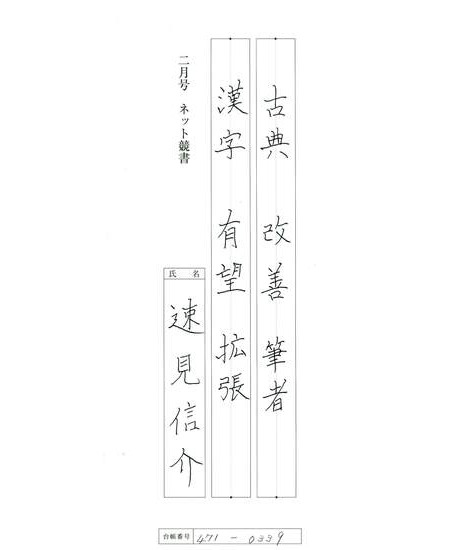 古典 改善 筆者
漢字 有望 拡張
二月号 ネット競書
氏 名
速見信介
台帳番号 471-0339